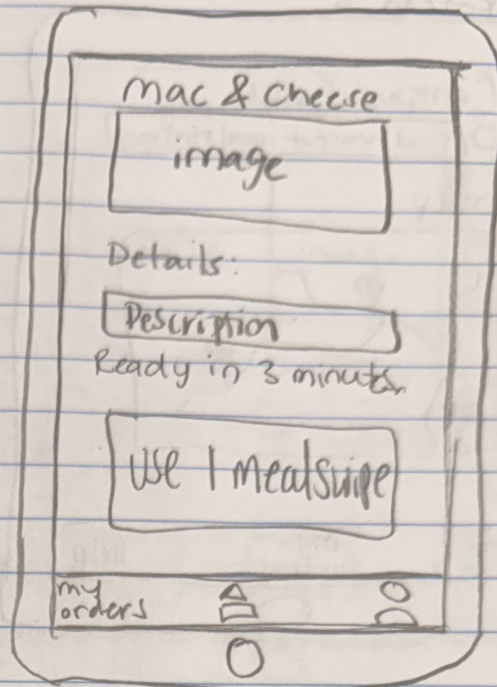 Mac & Cheese
image
Details:
Description
Ready in 3 minutes
Use 1 mealswipe
my
orders